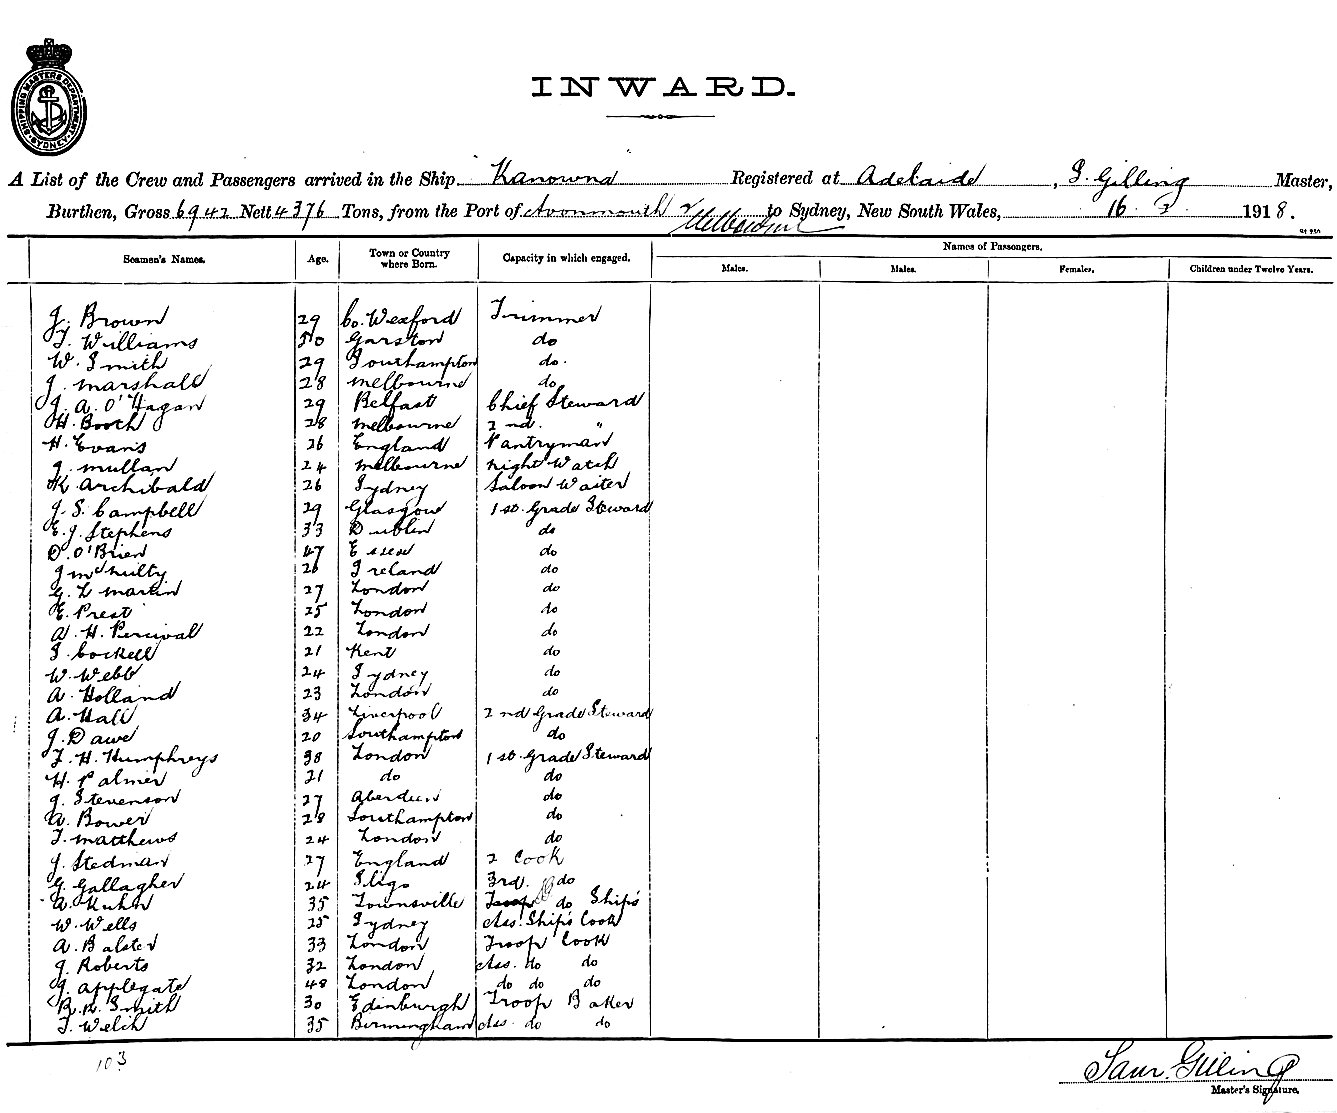 SHIPPING MASTERS DEPARTMENT SYDNEY
INWARD.
A List of the Crew and Passengers arrived in the Ship Kanowna Registered at Adelaide, S. Gilling Master,
Burthen, Gross 6942 Nett 4376 Tons, from the Port of Avonmouth & Melbourne to Sydney, New South Wales, 16 3 1918.
Names of Passengers.
Seamen's Names. Age. Town or Country where Born. Capacity in which engaged. Males. Males. Females. Children under Twelve Years.
J. Brown 29 Co. Wexford Trimmer
T. Williams 50 Garston do
W. Smith 29 Southampton do.
J. Marshall 28 Melbourne do
J. A. O'Hagan 29 Belfast Chief Steward
H. Booth 28 Melbourne 2nd. "
H. Evans 26 England Pantryman
J. Mullan 24 Melbourne Night Watch
K. Archibald 26 Sydney Saloon Waiter
J. S. Campbell 29 Glasgow 1st. Grade Steward
E. J. Stephens 33 Dublin do
D. O'Brien 47 Essex do
J McNulty 26 Ireland do
G. L. Martin 27 London do
E. Prest 25 London do
A. H. Percival 22 London do
S. Cockell 21 Kent do
W. Webb 24 Sydney do
A. Holland 23 London do
A. Hall 34 Liverpool 2nd Grade Steward
J. Dawe 20 Southampton do
F. H. Humphreys 38 London 1st. Grade Steward
H. Palmer 21 do do
J. Stevenson 27 Aberdeen do
A. Bower 28 Southampton do
T. Matthews 24 London do
J. Stedman 27 England 2 Cook
G. Gallagher 24 Sligo 3rd. do
A. Kuhn 35 Townsville Troop do Ship's
W. Wells 25 Sydney Ass. Ship's Cook
A. Balster 33 London Troop Cook
J. Roberts 32 London Ass. do do
J. Applegate 48 London do do do
R. N. Smith 30 Edinburgh Troop Baker
T. Welch 35 Birmingham Ass. do do
103
Saml. Gilling
Master's Signature.